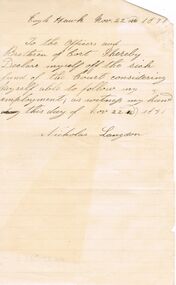 Eagle Hawk Nov. 22nd 1871
To the Officers and
Brethren of Cort
Declare myself off the sick
fund of the Court considering
myself able to follow my
employment, as witness my hand
this day of Nov 22nd 1871
Nicholas Langdon